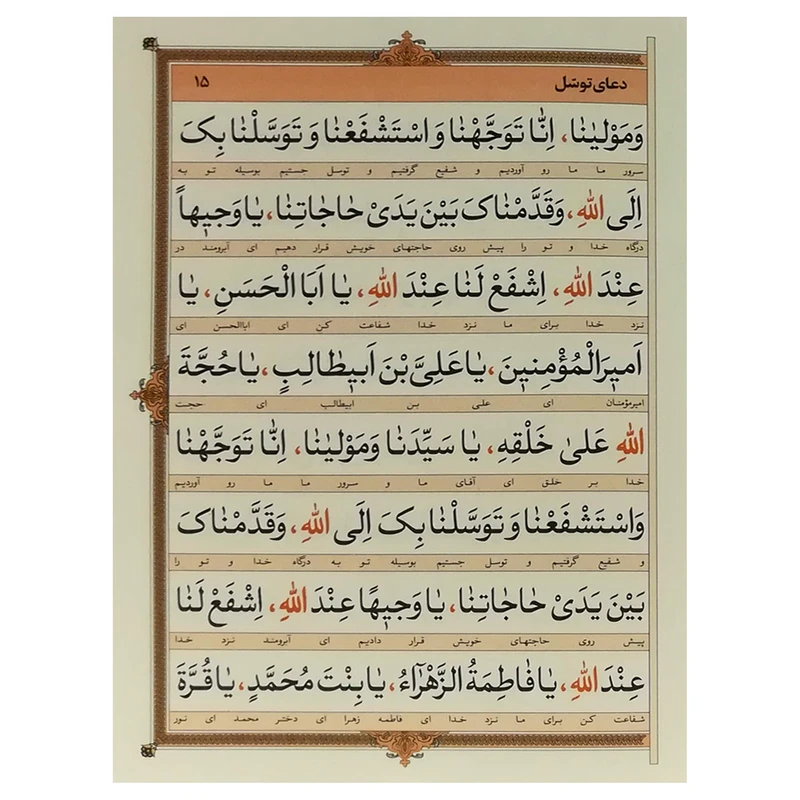 دعای توسّل ۱۵
وَمَوْلٰینٰا، اِنّٰا تَوَجَّهْنٰا وَ اسْتَشْفَعْنٰا وَ تَوَسَّلْنٰا بِکَ
سرور ما ما رو آوردیم و شفیع گرفتیم و توسل جستیم بوسیله تو به
اِلَی اللهِ، وَقَدَّمْنٰاکَ بَیْنَ یَدَیْ حٰاجٰاتِنٰا، یٰا وَجیهاً
درگاه خدا و تو را پیش روی حاجتهای خویش قرار دهیم ای آبرومند در
عِنْدَ اللهِ، اِشْفَعْ لَنٰا عِنْدَ اللهِ، یٰا اَبَا الْحَسَنِ، یٰا
نزد خدا برای ما نزد خدا شفاعت کن ای اباالحسن ای
اَمیرَالْمُؤْمِنینَ، یٰا عَلِیَّ بْنَ اَبیطٰالِبٍ، یٰا حُجَّةَ
امیرمؤمنان ای علی بن ابیطالب ای حجت
اللهِ عَلیٰ خَلْقِهِ، یٰا سَیِّدَنٰا وَمَوْلٰینٰا، اِنّٰا تَوَجَّهْنٰا
خدا بر خلق ای آقای ما و سرور ما ما رو آوردیم
وَاسْتَشْفَعْنٰا وَ تَوَسَّلْنٰا بِکَ اِلَی اللهِ، وَقَدَّمْنٰاکَ
و شفیع گرفتیم و توسل جستیم بوسیله تو به درگاه خدا و تو را
بَیْنَ یَدَیْ حٰاجٰاتِنٰا، یٰا وَجیهًا عِنْدَ اللهِ، اِشْفَعْ لَنٰا
پیش روی حاجتهای خویش قرار دادیم ای آبرومند نزد خدا
عِنْدَ اللهِ، یٰا فٰاطِمَةُ الزَّهْرٰآءُ، یٰا بِنْتَ مُحَمَّدٍ، یٰا قُرَّةَ
شفاعت کن برای ما نزد خدا ای فاطمه زهرا ای دختر محمد ای نور